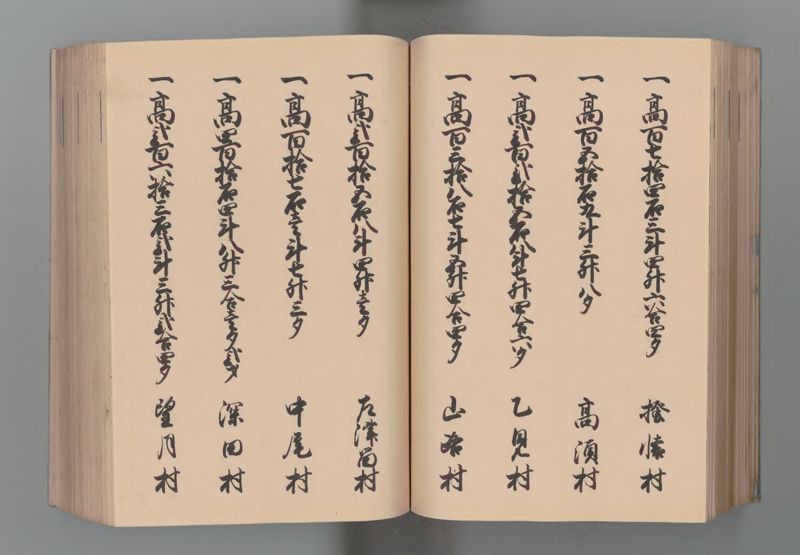 一高百七拾四石三斗四升六合四夕 村
一高百五拾石九斗三升八夕 高須村
一高弐百弐拾五石八斗七升四合六夕 乙見村
一高百三拾八石七斗五升四合四夕 山路村
一高弐百拾五石八斗四升壱夕 左津留村
一高百拾七石壱斗七升三夕 中尾村
一高四百拾石四斗八升三合壱夕弐 深田村
一高弐百六拾三石弐斗三升弐合四夕 望月村